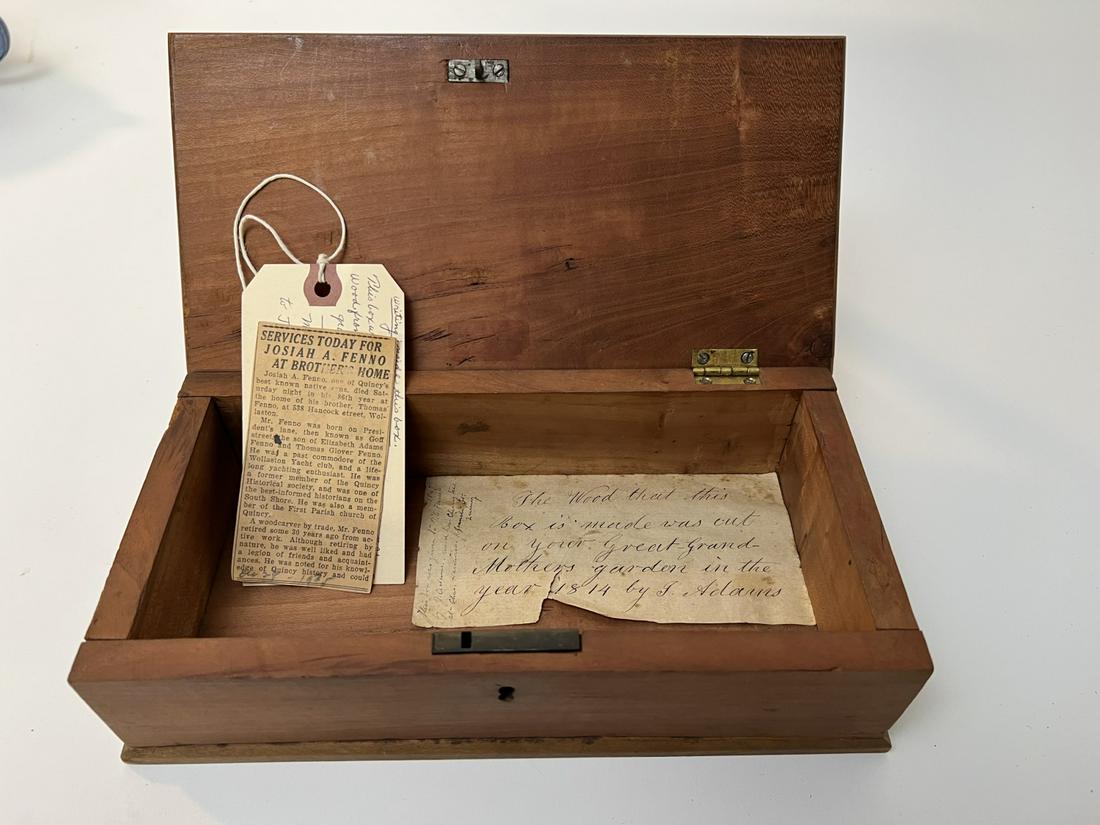 writing inside this box.
This box
Wood from
to J
SERVICES TODAY FOR
JOSIAH A. FENNO
AT BROTHER'S HOME
Josiah A. Fenno, one of Quincy's
best known native sons, died Sat-
urday night in his 86th year at
the home of his brother, Thomas
Fenno, at 538 Hancock street, Wol-
laston.
Mr. Fenno was born on Presi-
dent's lane, then known as Goff
street, the son of Elizabeth Adams
Fenno and Thomas Glover Fenno.
He was a past commodore of the
Wollaston Yacht club, and a life-
long yachting enthusiast. He was
a former member of the Quincy
Historical society, and was one of
the best-informed historians on the
South Shore. He was also a mem-
ber of the First Parish church of
Quincy.
A woodcarver by trade, Mr. Fenno
retired some 20 years ago from ac-
tive work. Although retiring by
nature, he was well liked and had
a legion of friends and acquaint-
ances. He was noted for his knowl-
edge of Quincy history and could
The Wood that this
Box is made was cut
on your Great-Grand-
Mothers garden in the
year 1814 by J. Adams